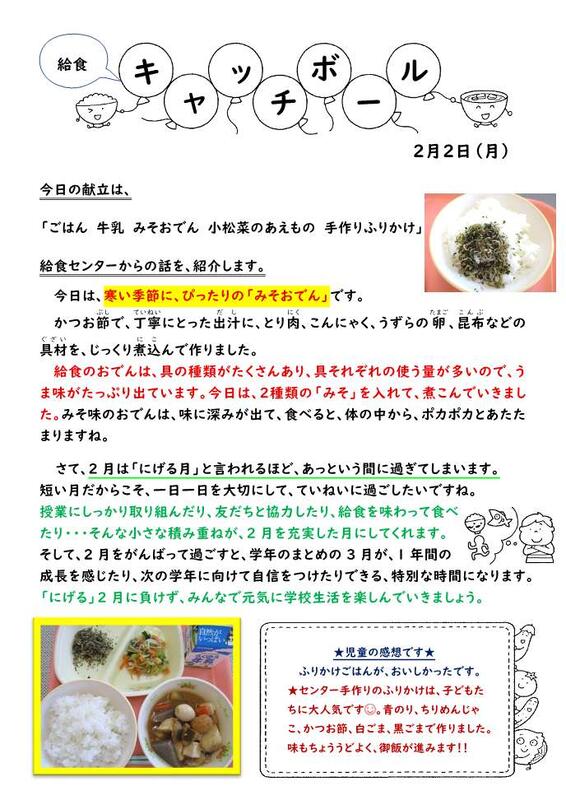 給食
キャッチボール
2月2日(月)
今日の献立は、
「ごはん 牛乳 みそおでん 小松菜のあえもの 手作りふりかけ」
給食センターからの話を、紹介します。
今日は、寒い季節に、ぴったりの「みそおでん」です。
かつお節で、丁寧にとった出汁に、とり肉、こんにゃく、うずらの卵、昆布などの
具材を、じっくり煮込んで作りました。
給食のおでんは、具の種類がたくさんあり、具それぞれの使う量が多いので、う
ま味がたっぷり出ています。今日は、2種類の「みそ」を入れて、煮こんでいきまし
た。みそ味のおでんは、味に深みが出て、食べると、体の中から、ポカポカとあたた
まりますね。
さて、2月は「にげる月」と言われるほど、あっという間に過ぎてしまいます。
短い月だからこそ、一日一日を大切にして、ていねいに過ごしたいですね。
授業にしっかり取り組んだり、友だちと協力したり、給食を味わって食べ
たり・・・そんな小さな積み重ねが、2月を充実した月にしてくれます。
そして、2月をがんばって過ごすと、学年のまとめの3月が、1年間の
成長を感じたり、次の学年に向けて自信をつけたりできる、特別な時間になります。
「にげる」2月に負けず、みんなで元気に学校生活を楽しんでいきましょう。
自然が
いっぱい。
★児童の感想です★
ふりかけごはんが、おいしかったです。
★センター手作りのふりかけは、子どもた
ちに大人気です☺。青のり、ちりめんじゃ
こ、かつお節、白ごま、黒ごまで作りました。
味もちょうどよく、御飯が進みます!!